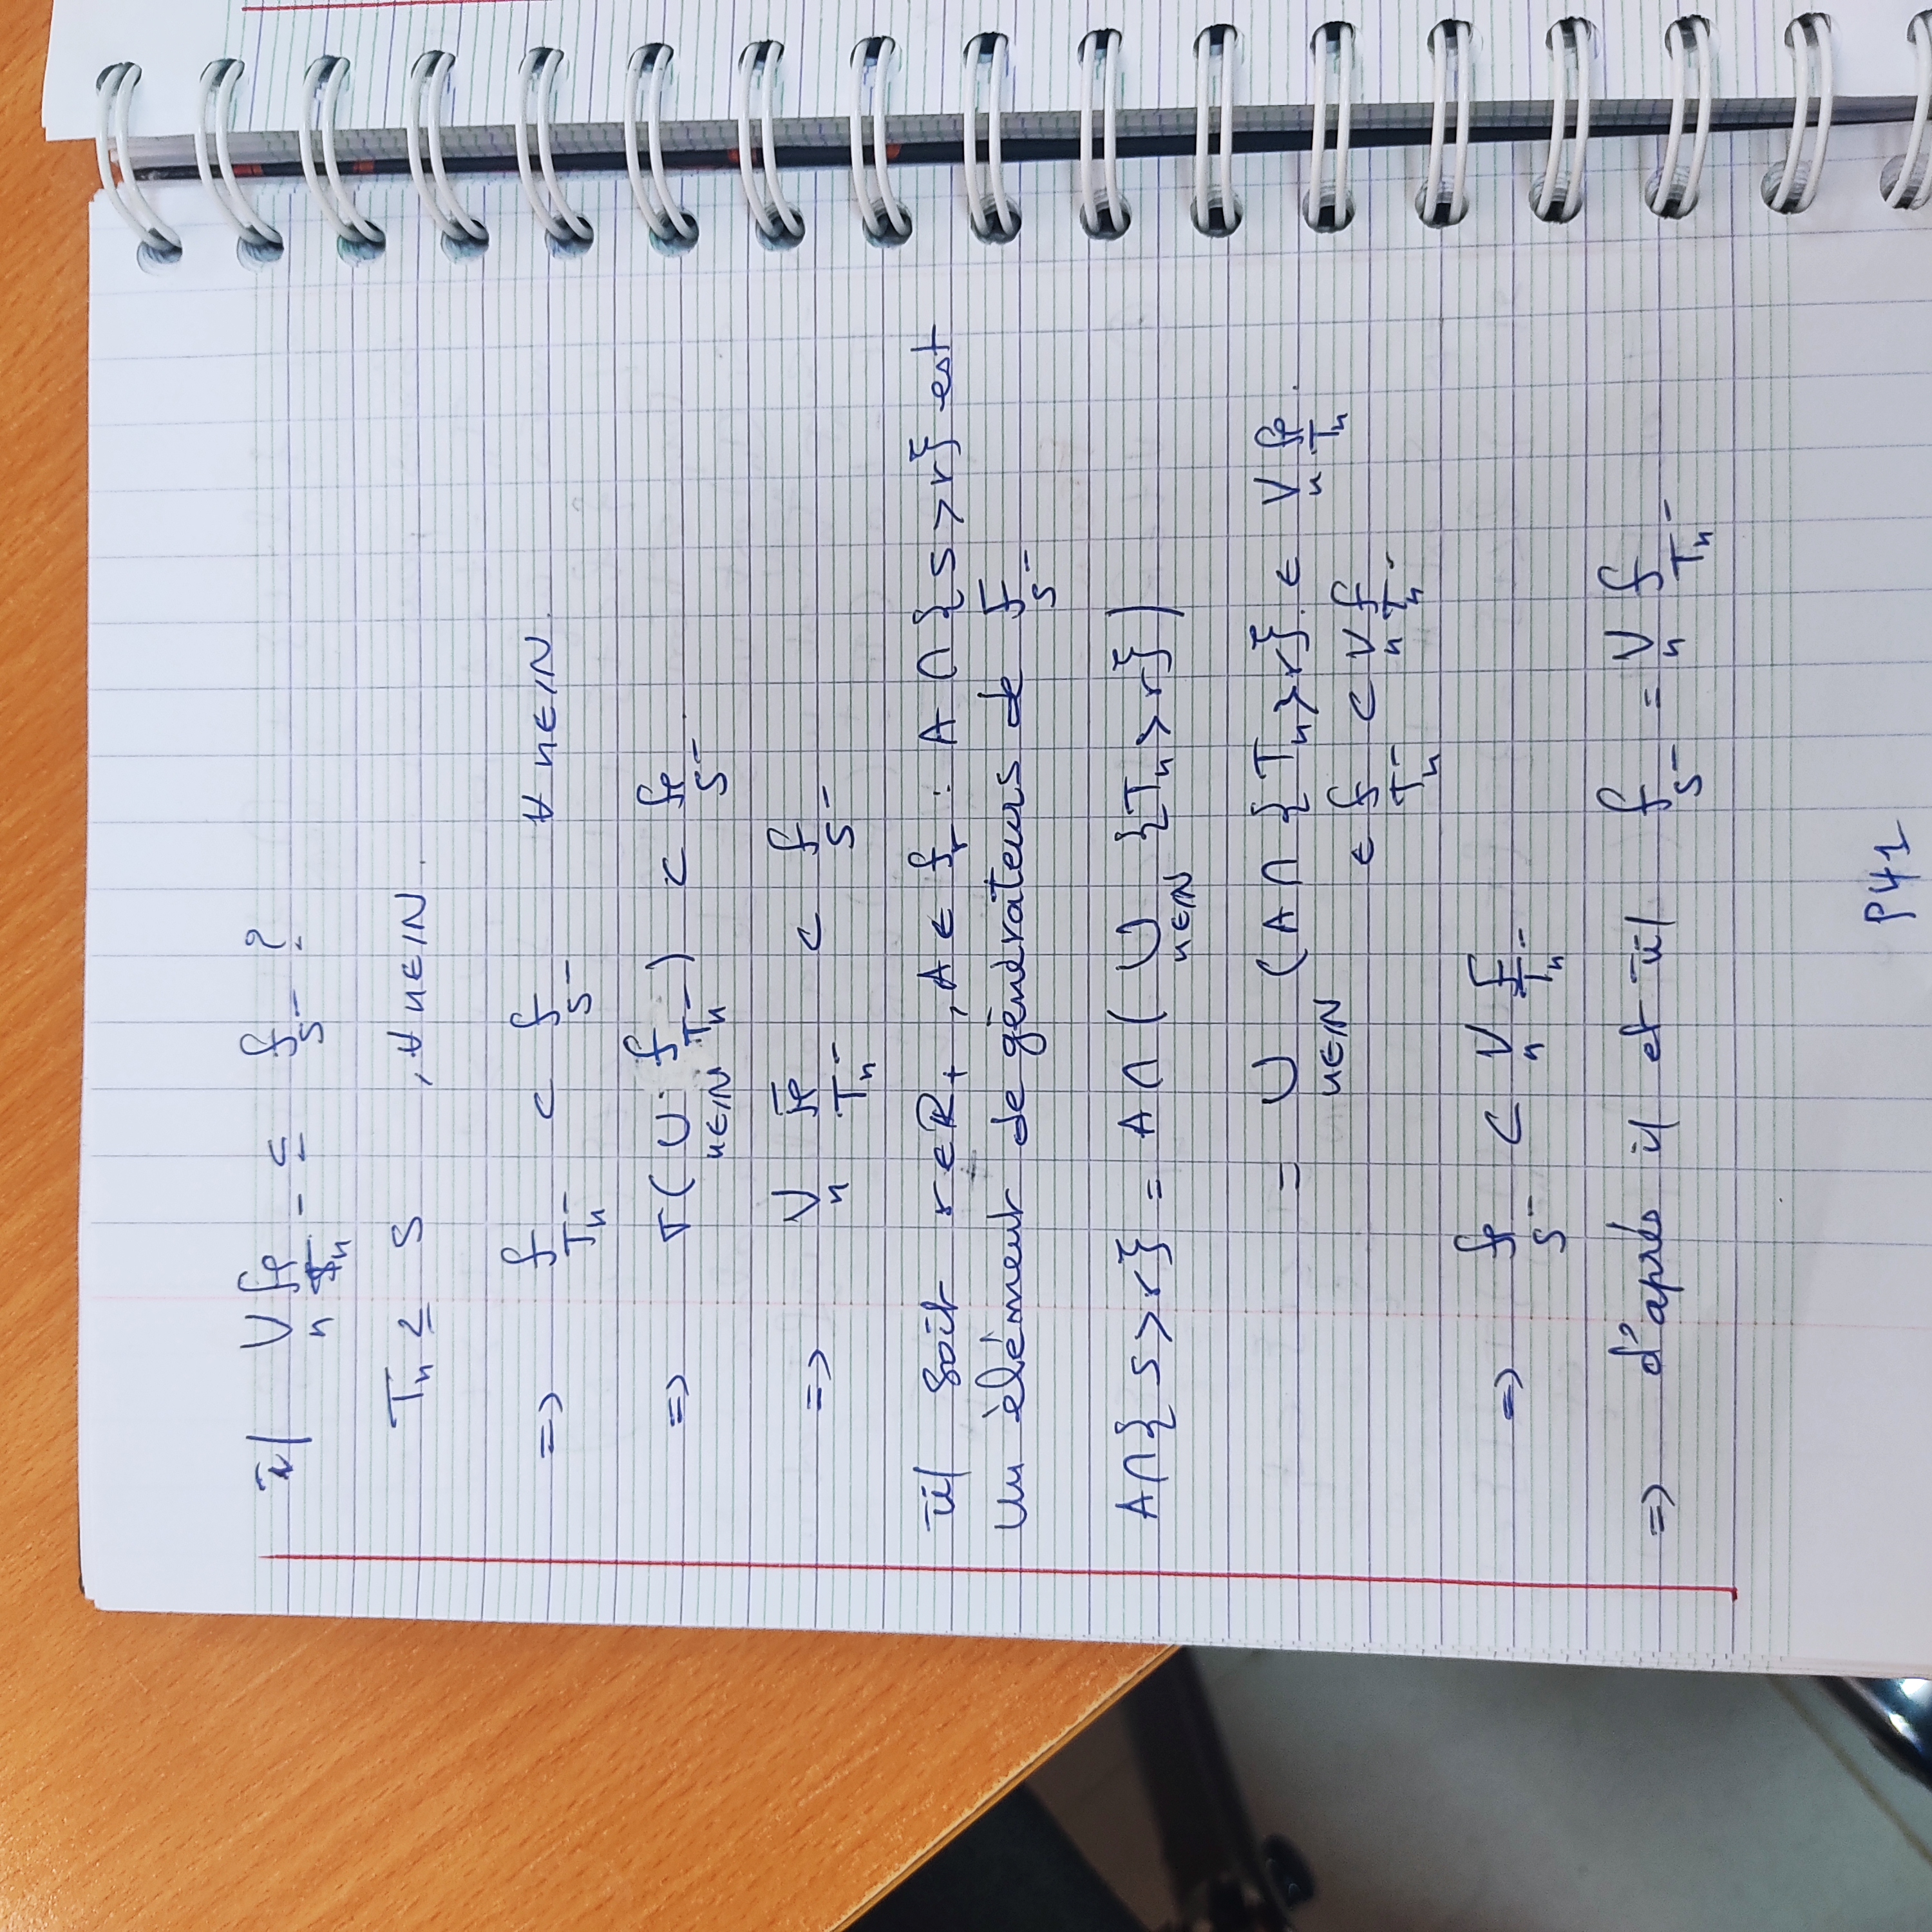 i/ ⋁_n ℱ_{T_n^-} ⊆ ℱ_{S^-} ?
T_n ≥ S , ∀ n ∈ ℕ.
=> ℱ_{T_n^-} ⊂ ℱ_{S^-} ∀ n ∈ ℕ.
=> σ( ∪_{n∈ℕ} ℱ_{T_n^-} ) ⊂ ℱ_{S^-}.
=> ⋁_n ℱ_{T_n^-} ⊂ ℱ_{S^-}
ii/ soit r ∈ ℝ_+ , A ∈ ℱ_r : A ∩ {S > r} est
Un èlément de générateurs de ℱ_{S^-}
A ∩ { S > r} = A ∩ ( ∪_{n∈ℕ} {T_n > r} )
= ∪_{n∈ℕ} (A ∩ {T_n > r}. ∈ ⋁_n ℱ_{T_n}.
∈ ℱ_{T_n^-} ⊂ ⋁_n ℱ_{T_n^-}
=> ℱ_{S^-} ⊂ ⋁_n ℱ_{T_n^-}
=> d'aprés i/ et ii/ ℱ_{S^-} = ⋁_n ℱ_{T_n^-}
P41